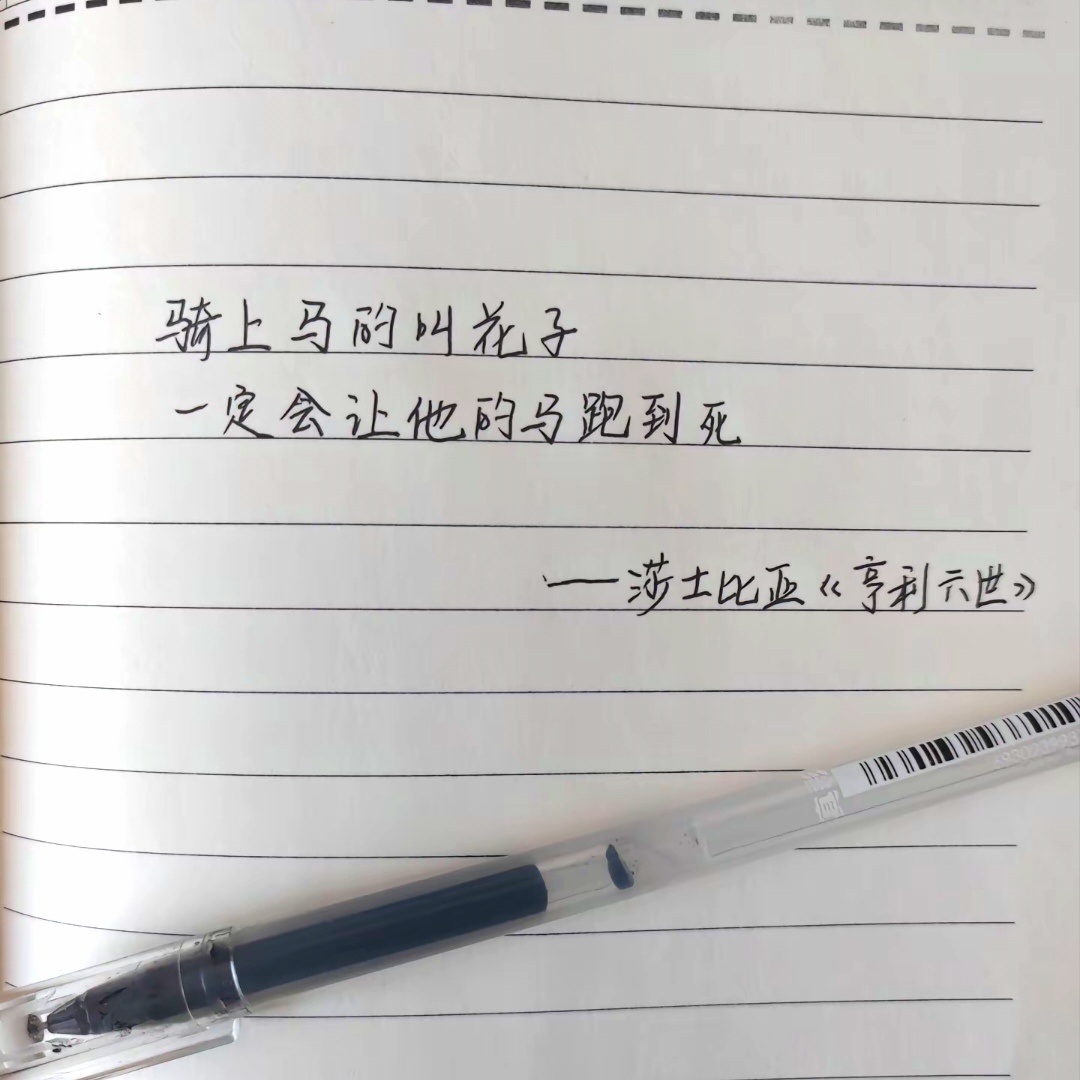 骑上马的叫花子
一定会让他的马跑到死
——莎士比亚《亨利六世》